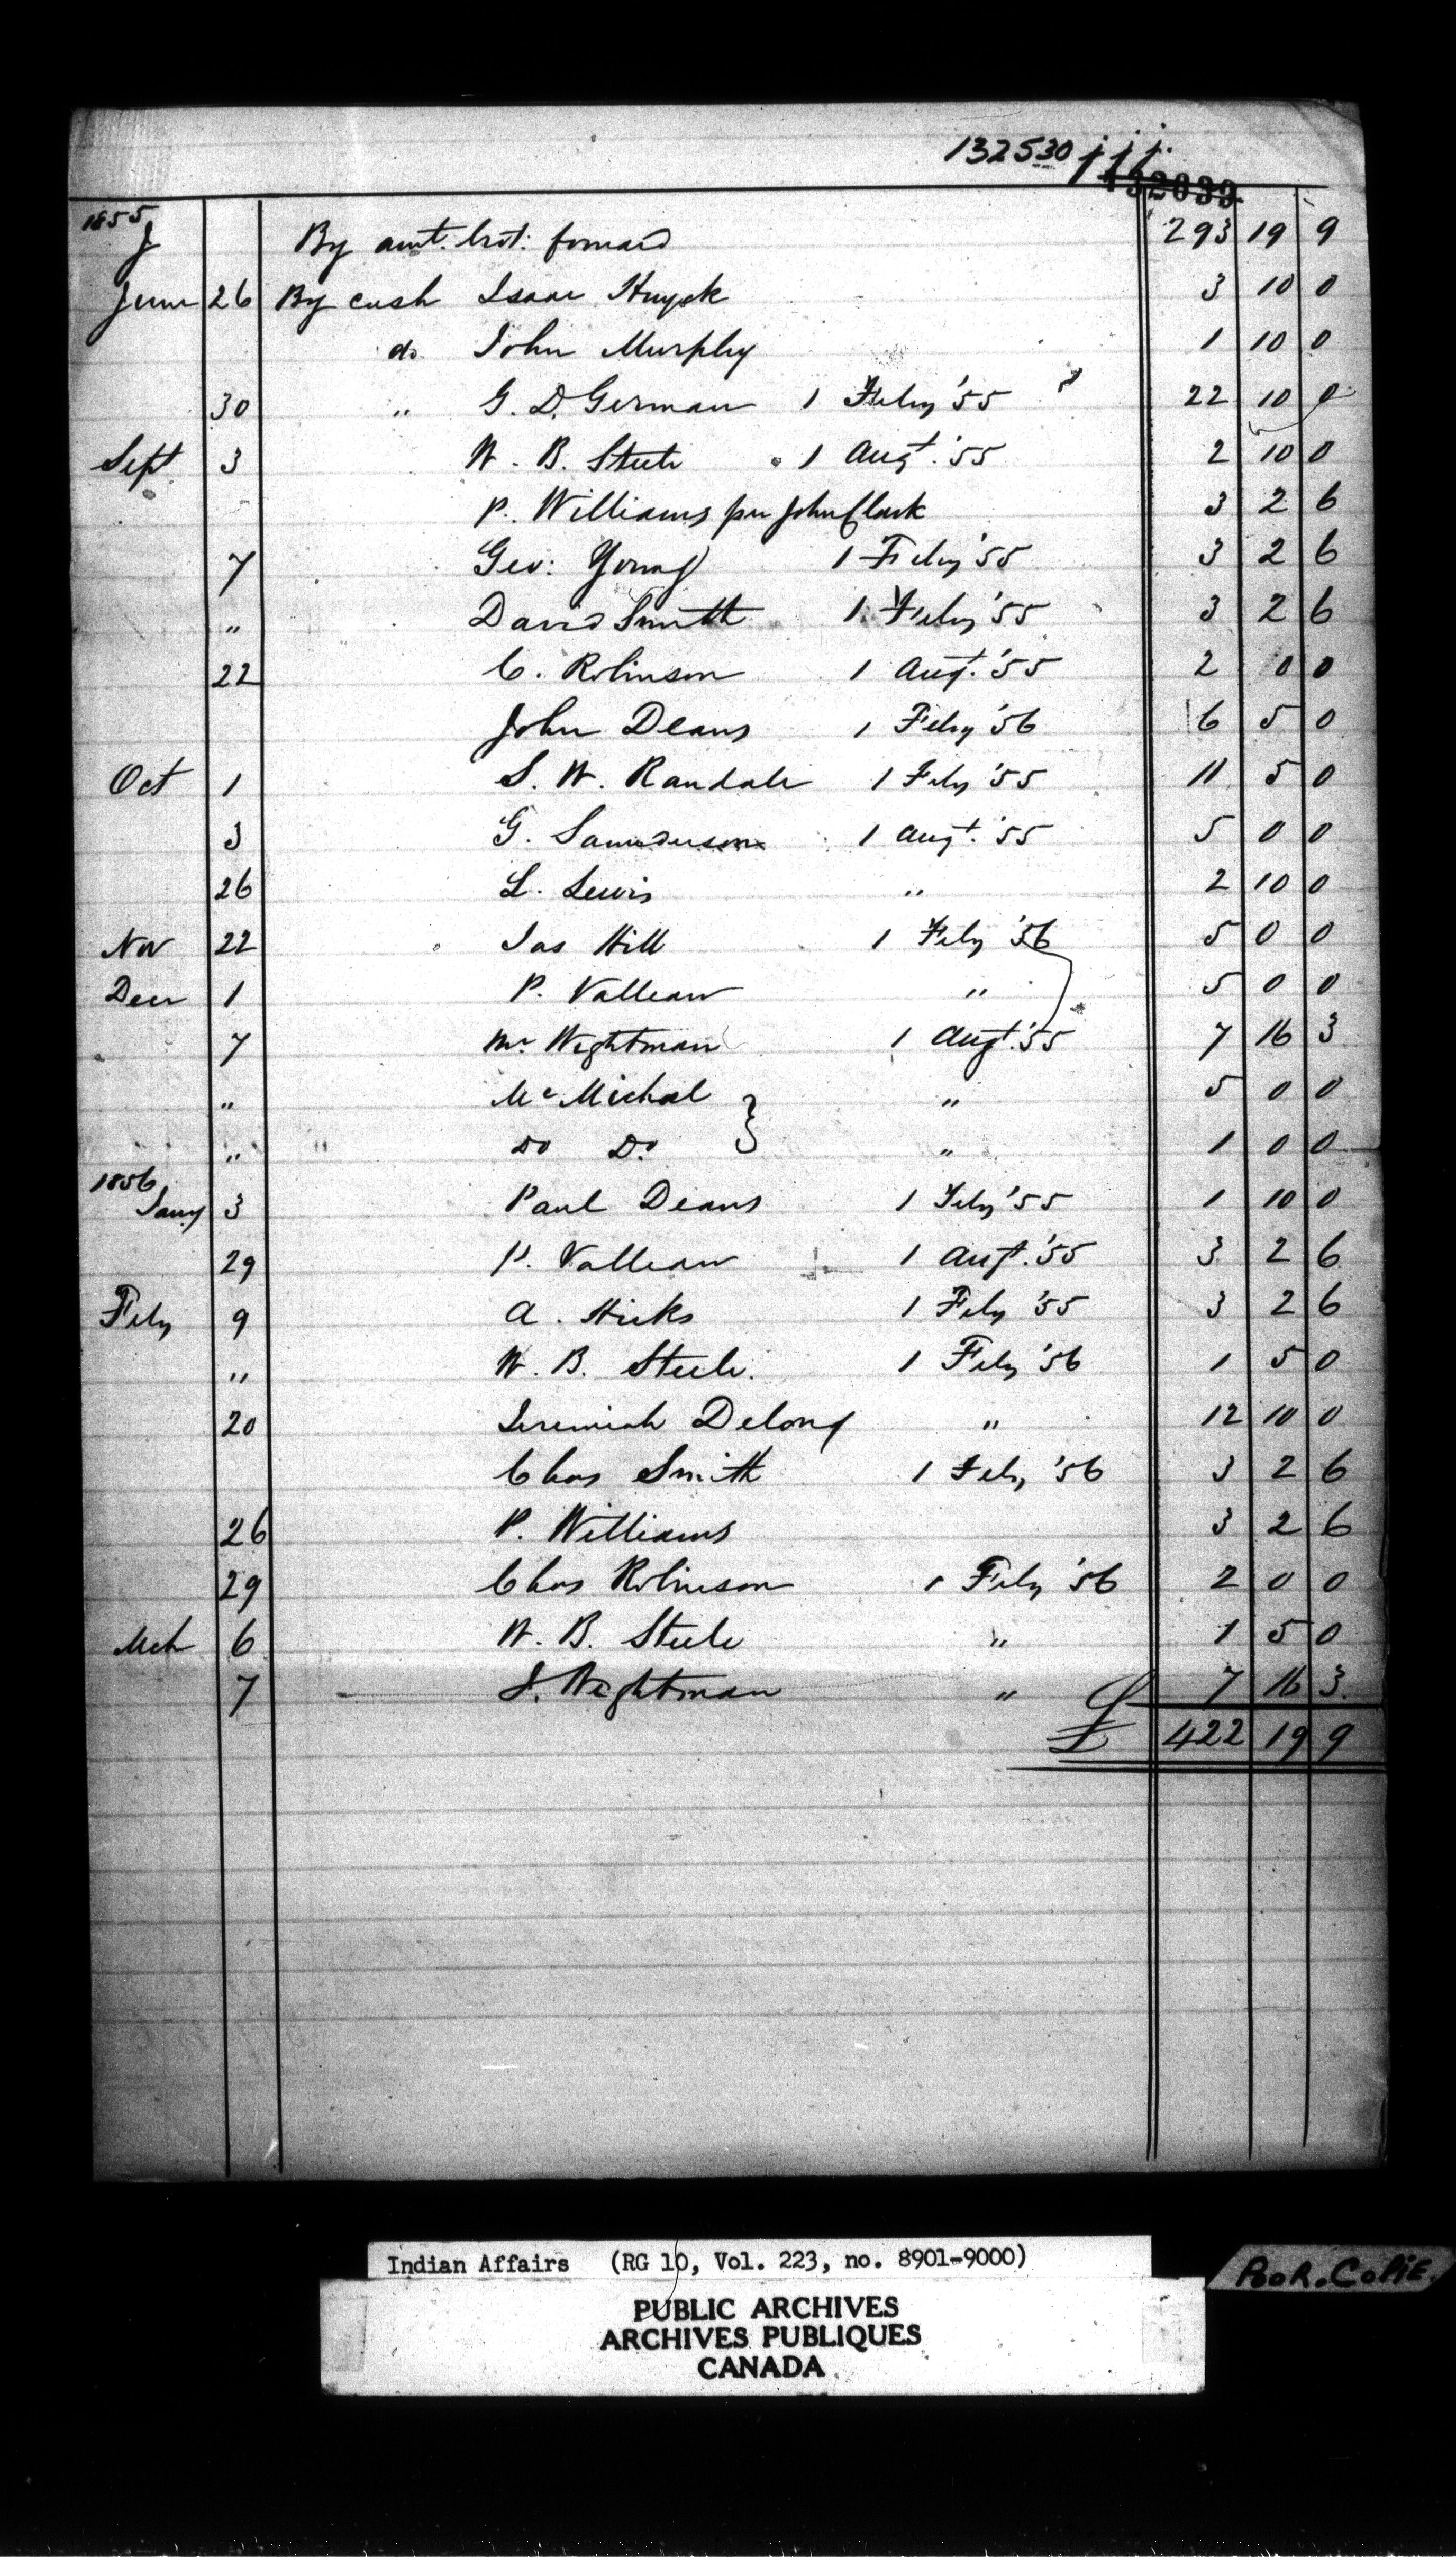 132530 jjj.
132039
1855
J By amt. brot. forward 293 19 9
June 26 By cash Isaac Huyck 3 10 0
do John Murphy 1 10 0
30 " G. D. German 1 Feby '55 22 10 0
Sept 3 W. B. Steele 1 Augt. '55 2 10 0
P. Williams per John Clark 3 2 6
7 Geo: Young 1 Feby '55 3 2 6
" David Smith 1 Feby '55 3 2 6
22 C. Robinson 1 Augt. '55 2 0 0
John Deans 1 Feby '56 6 5 0
Oct 1 S. W. Randale 1 Feby '55 11 5 0
3 G. Saunderson 1 Augt. '55 5 0 0
26 L. Lewis " 2 10 0
Nov 22 Jas Hill 1 Feby '56 5 0 0
Decr 1 P. Valleau " 5 0 0
7 Mr Wightman 1 Augt. '55 7 16 3
" Mc Michael } " 5 0 0
" Do Do } " 1 0 0
1856
Jany 3 Paul Deans 1 Feby '55 1 10 0
29 P. Valleau 1 Augt. '55 3 2 6
Feby 9 A. Hicks 1 Feby '55 3 2 6
" W. B. Steele. 1 Feby '56 1 5 0
20 Jeremiah Delong " 12 10 0
Chas Smith 1 Feby '56 3 2 6
26 P. Williams 3 2 6
29 Chas Robinson 1 Feby '56 2 0 0
Mch 6 W. B. Steele " 1 5 0
7 J. Wightman " 7 16 3
£ 422 19 9
Indian Affairs (RG 10, Vol. 223, no. 8901-9000)
PUBLIC ARCHIVES
ARCHIVES PUBLIQUES
CANADA
PooR. CoPiE.